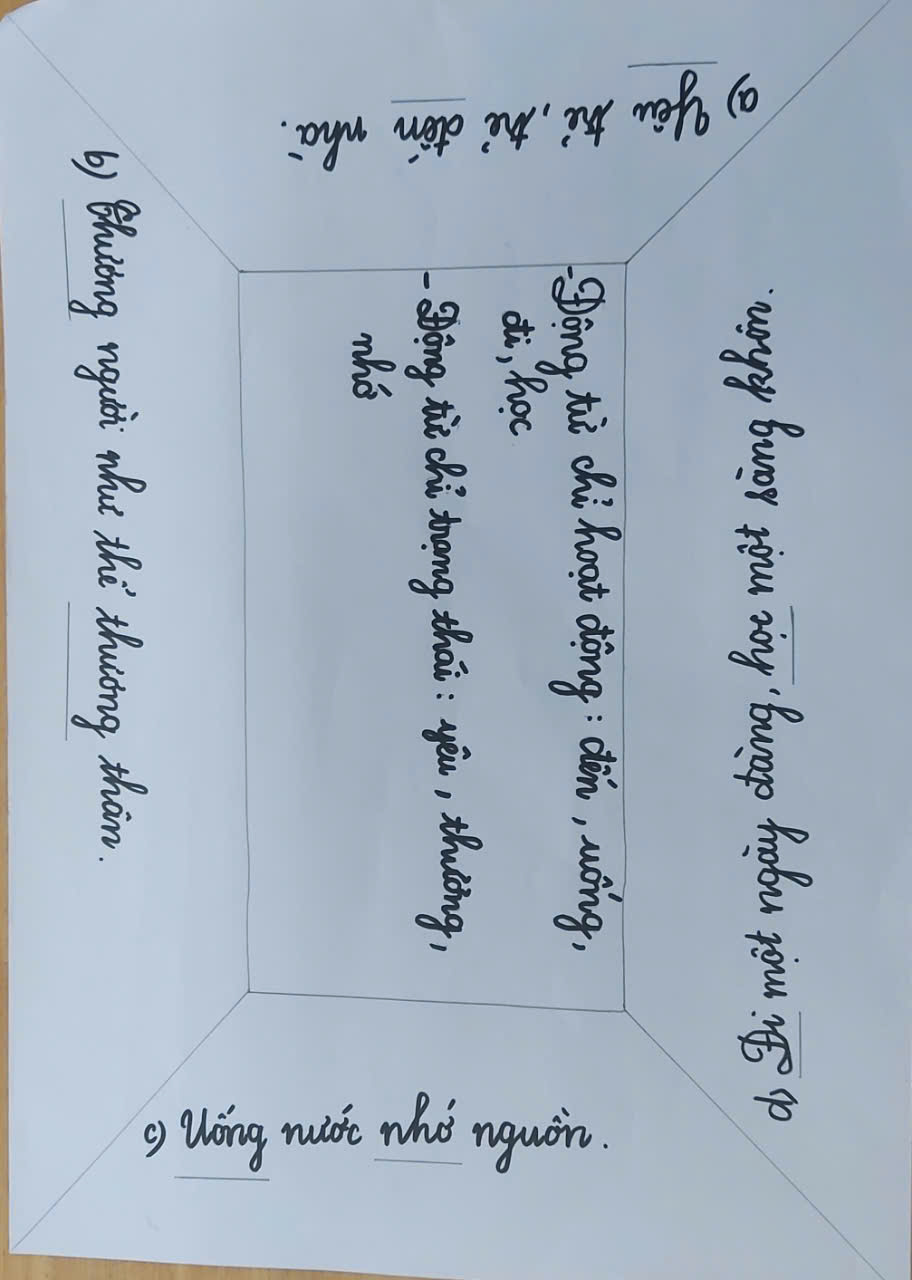 a) Yêu trẻ, trẻ đến nhà.
b) Thương người như thể thương thân.
c) Uống nước nhớ nguồn.
d) Đi một ngày đàng, học một sàng khôn.
- Động từ chỉ hoạt động: đến, uống,
đi, học
- Động từ chỉ trạng thái: yêu, thương,
nhớ